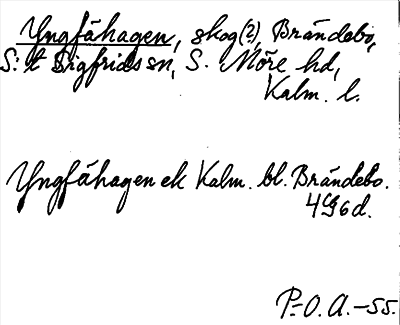 Yngfåhagen, skog(?), Brändebo,
S:t Sigfrids sn, S. Möre hd,
Kalm. l.
Yngfåhagen ek Kalm. bl. Brändebo.
4G6d.
P.-O. A. -55.